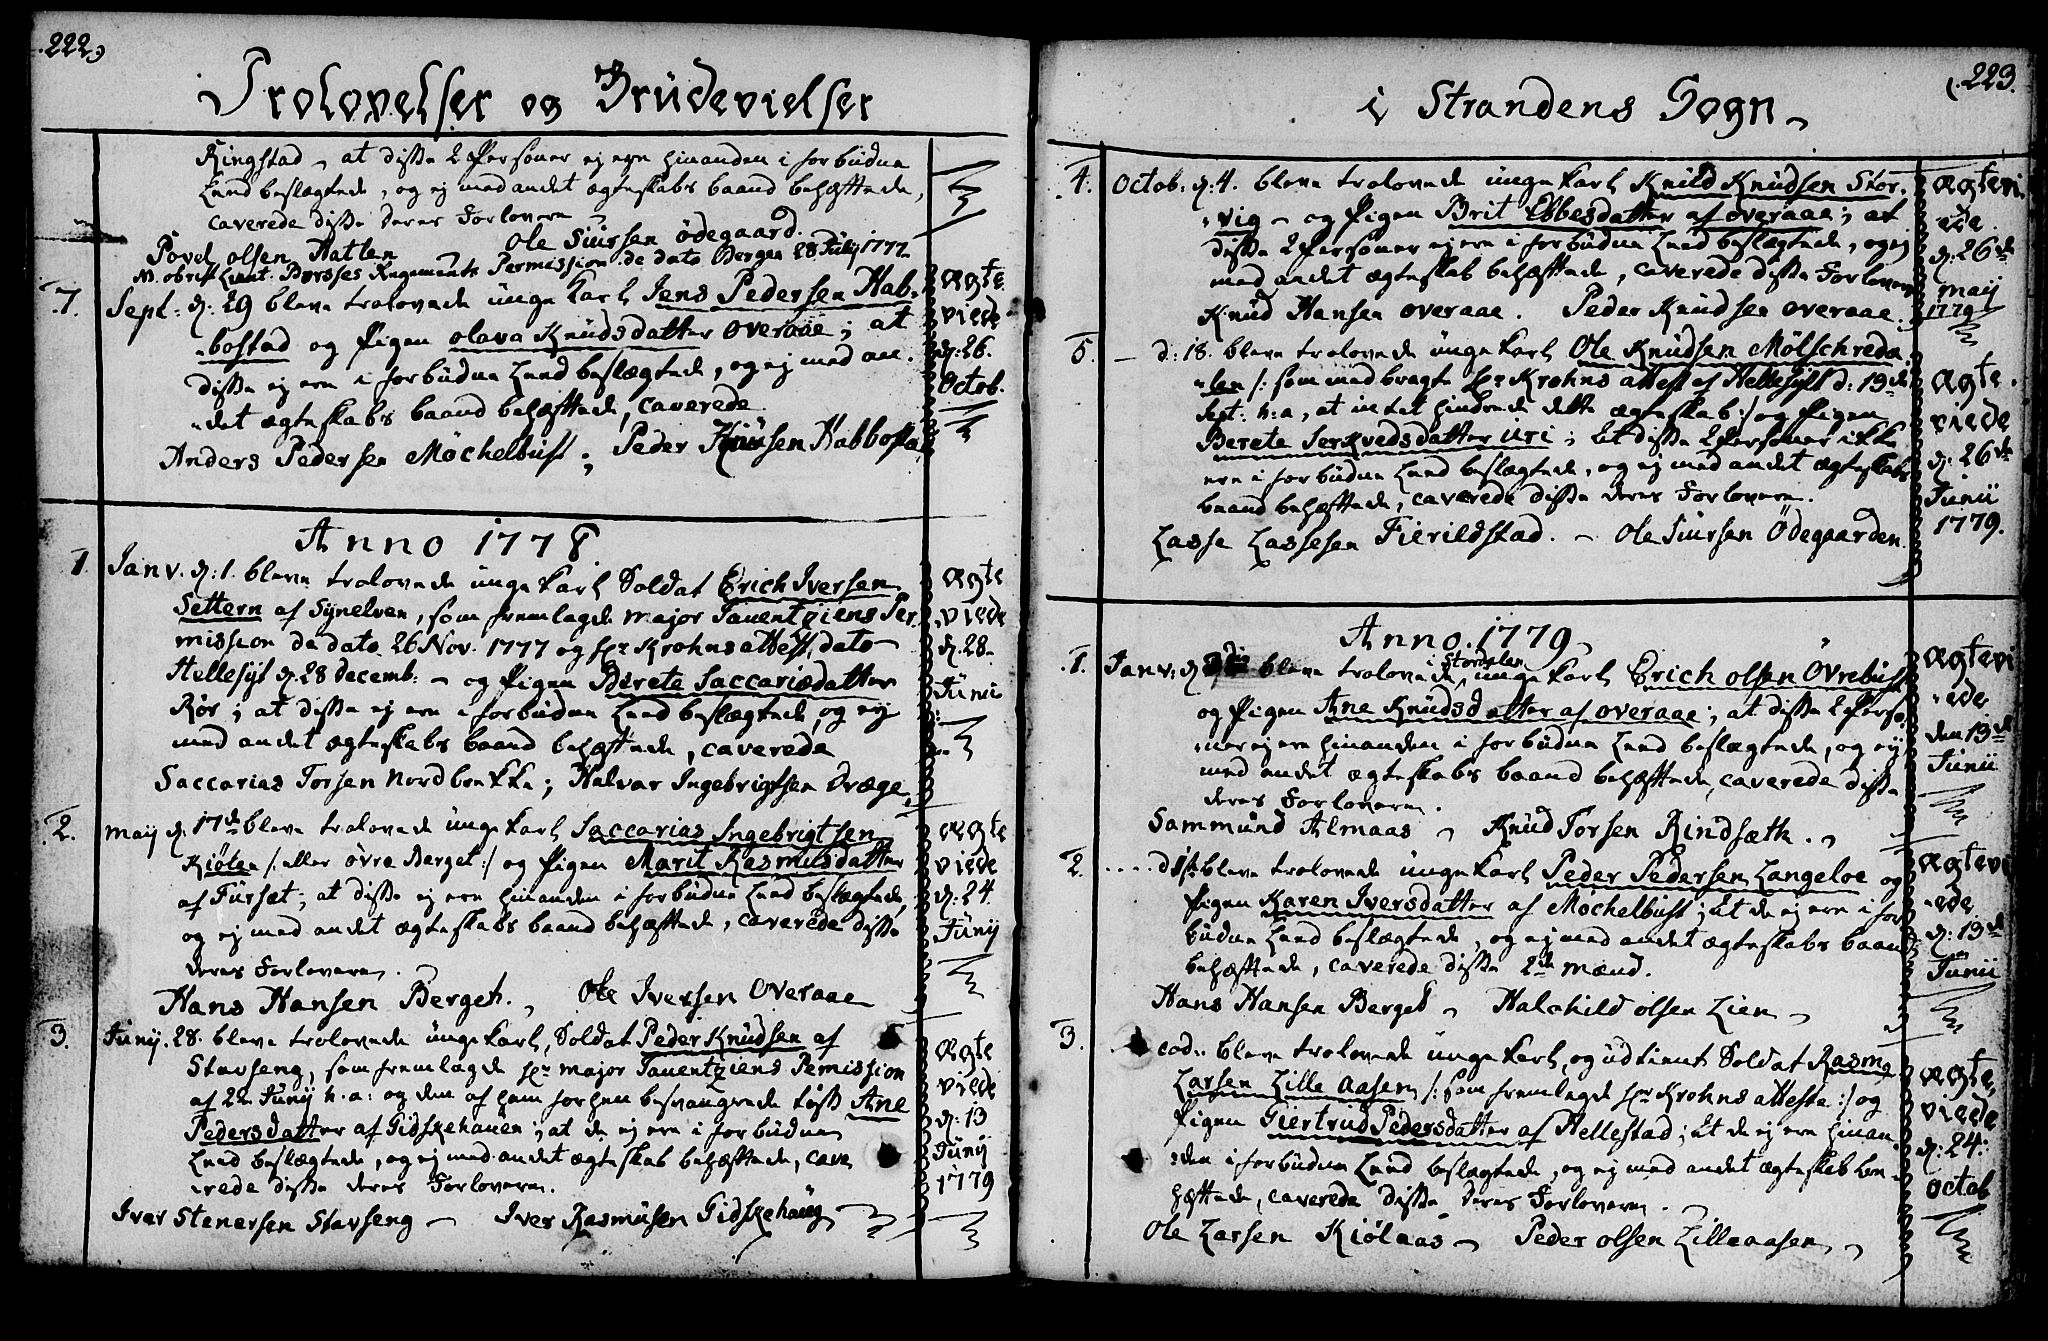 222
Trolovelser og Brüdevielser
Ringstad, at disse 2 Personer ej ere hinanden i forbudne
Leed beslægtede, og ej med andet ægteskabs baand behæftede,
caverede disse deres Forlovere
Povel olsen Hatlen Ole Siursen ödegaard.
Obrist Lieut. Regements Permission de dato Bergen 28 Julij 1777
7. Sept: d: 29 bleve trolovede unge Karl Jens Pedersen Hab-
bostad og Pigen olava Knüdsdatter overaae; at
disse ej ere i forbudne Leed beslægtede, og ej med an-
det ægteskabs baand behæftede, caverede
Anders Pedersen Möchelbust, Peder Knüsen Habbosta
Ægte-
viede
d: 26.
Octob.
Anno 1778
1. Janv. d: 1. bleve trolovede unge Karl Soldat Erich Iversen
Settern af Synelven, som fremlagde major Tauentziens Per-
mission de dato 26 Nov. 1777 og Hr Krohns attest, dato
Hellesylt d. 28 decemb: og Pigen Berete Saccariædatter
Rör; at disse ej ere i forbudne Leed beslægtede, og ej
med andet ægteskabs baand behæftede, caverede
Saccarias Torsen Nordbrekke; Halvar Ingebrigtsen Dræge
Ægte
viede
d. 28
Junii
2. maij d. 17de bleve trolovede unge Karl Saccarias Ingebrigtsen
Kiölen /: eller övre Berget :/ og Pigen Marit Rasmusdatter
af Fürset; at disse ej ere hinanden i forbudne Leed beslægtede,
og ej med andet ægteskabs baand behæftede, caverede disse
deres Forlovere.
Hans Hansen Berget. Ole Iversen Overaae
Ægte
viede
d: 24.
Junij
3. Junij. 28. bleve trolovede unge Karl, Soldat Peder Knüdsen af
Stavseng, som fremlagde Hr major Tauentziens Pemission
af 22 Junij h. a: og den af ham forhen besvangrede tös Ane
Pedersdatter af Gidskehauen; at de ej ere i forbudne
Leed beslægtede, og ej med andet ægteskab behæftede, cave
rede disse deres Forlovere.
Iver Stenersen Stavseng Iver Rasmusen Gidskehaug
Ægte
viede
d: 13
Junij
1779
223.
i Strandens Sogn
4. Octob: d: 4. bleve trolovede unge Karl Knüd Knüdsen Stor-
vig og Pigen Brit Ebbesdatter af overaae; at
disse 2 Personer ej ere i forbudne Leed beslægtede, og ej
med andet ægteskab behæftede, caverede disse Forlovere
Knüd Hansen overaae. Peder Knüdsen overaae
Ægtevi
ede
d: 26de
maij
1779
5. d: 18. bleve trolovede unge Karl Ole Knüdsen Mölschreda
len /: som medbragte Hr Krohns attest af Hellesylt d: 19de
Sept: h: a, at intet hindrede dette ægteskab :/ og Pigen
Berete Serkvedsdatter üri; at disse 2 Personer ikke
ere i forbudne Leed beslægtede, og ej med andet ægteskabs
baand behæftede, caverede disse deres Forlovere.
Lasse Lassesen Fierildstad. Ole Siursen Ödegaarden
Ægte
viede
d: 26de
Junii
1779.
Anno 1779
i Stordalen
1. Janv: d bleve trolovede unge Karl Erich olsen Övrebust
og Pigen Ane Knüdsdatter af overaae; at disse 2 Perso-
ner ej ere hinanden i forbudne Leed beslægtede, og ej
med andet ægteskabs baand behæftede, caverede disse
deres Forlovere.
Sammund Almaas Knüd Torsen Rindsæth.
Ægtevi
ede
den 13de
Junii
2. d bleve trolovede unge Karl Peder Pedersen Langeloe og
Pigen Karen Iversdatter af Möchelbust; at de ej ere i for
budne Leed beslægtede, og ej med andet ægteskabs baand
behæftede, caverede disse 2de mænd.
Hans Hansen Berget Halchild olsen Lien
Ægtevi
ede
d: 13de
Junii
3. eod: bleve trolovede unge Karl, og udtient Soldat Rasmus
Larsen Lille Aasen /: som fremlagde Hr Krohns attest :/ og
Pigen Giertrud Pedersdatter af Hellestad; at de ej ere hinan-
den i forbudne Leed beslægtede, og ej med andet ægteskab be-
hæftede, caverede disse deres Forlovere.
Ole Larsen Kiölaas Peder olsen Lilleaasen
Ægte
viede
d: 24:
octob